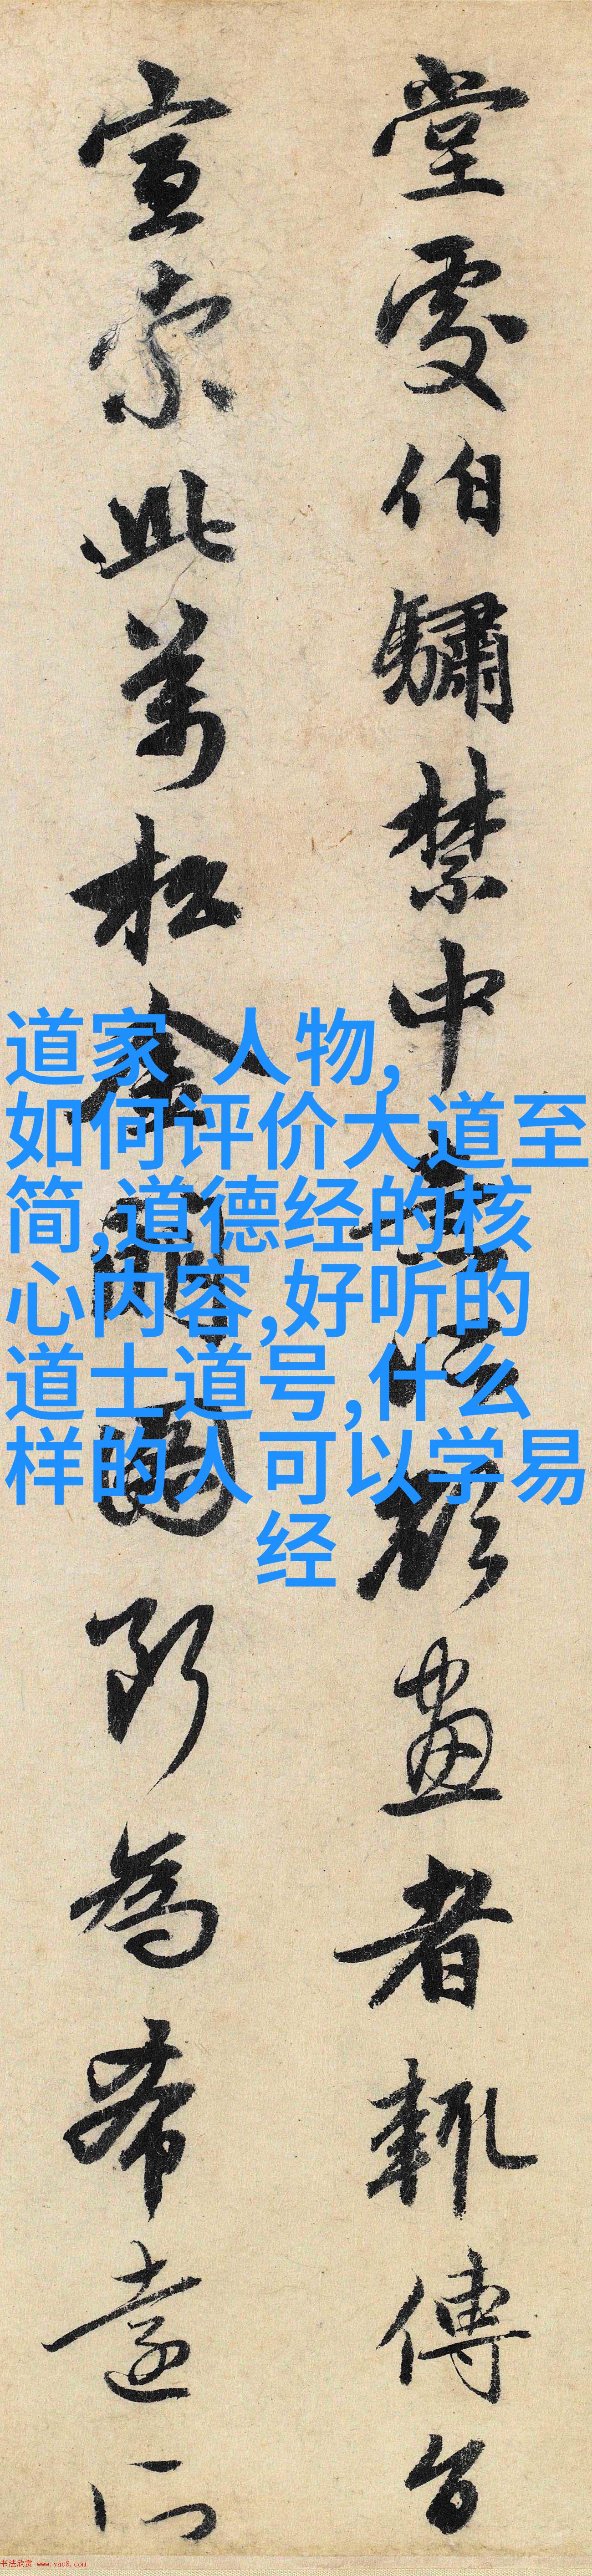 堂處伯驌禁中意所欲畫者輒傳旨
宣索此萬松金闕圖為希遠所
道家 人物,
如何评价大道至
简,道德经的核
心内容,好听的
道士道号,什么
样的人可以学易
经
书法欣赏 www.yac8.com